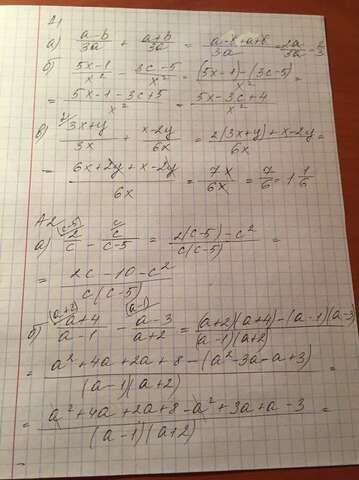 А1
а) (a-b)/3a + (a+b)/3a = (a-b+a+b)/3a = 2a/3a = 2/3
б) (5x-1)/x² - (3c-5)/x² = ((5x-1)-(3c-5))/x² =
= (5x-1-3c+5)/x² = (5x-3c+4)/x²
в) ²⁾(3x+y)/3x + (x-2y)/6x = (2(3x+y)+x-2y)/6x =
= (6x+2y+x-2y)/6x = 7x/6x = 7/6 = 1 1/6
А2
а) ⁽ᶜ⁻⁵⁾2/c - ᶜ⁾c/(c-5) = (2(c-5)-c²)/c(c-5) =
= (2c-10-c²)/c(c-5)
б) ⁽ᵃ⁺²⁾(a+4)/(a-1) - ⁽ᵃ⁻¹⁾(a-3)/(a+2) = ((a+2)(a+4)-(a-1)(a-3))/(a-1)(a+2) =
= (a²+4a+2a+8-(a²-3a-a+3))/(a-1)(a+2) =
= (a²+4a+2a+8-a²+3a+a-3)/(a-1)(a+2) =